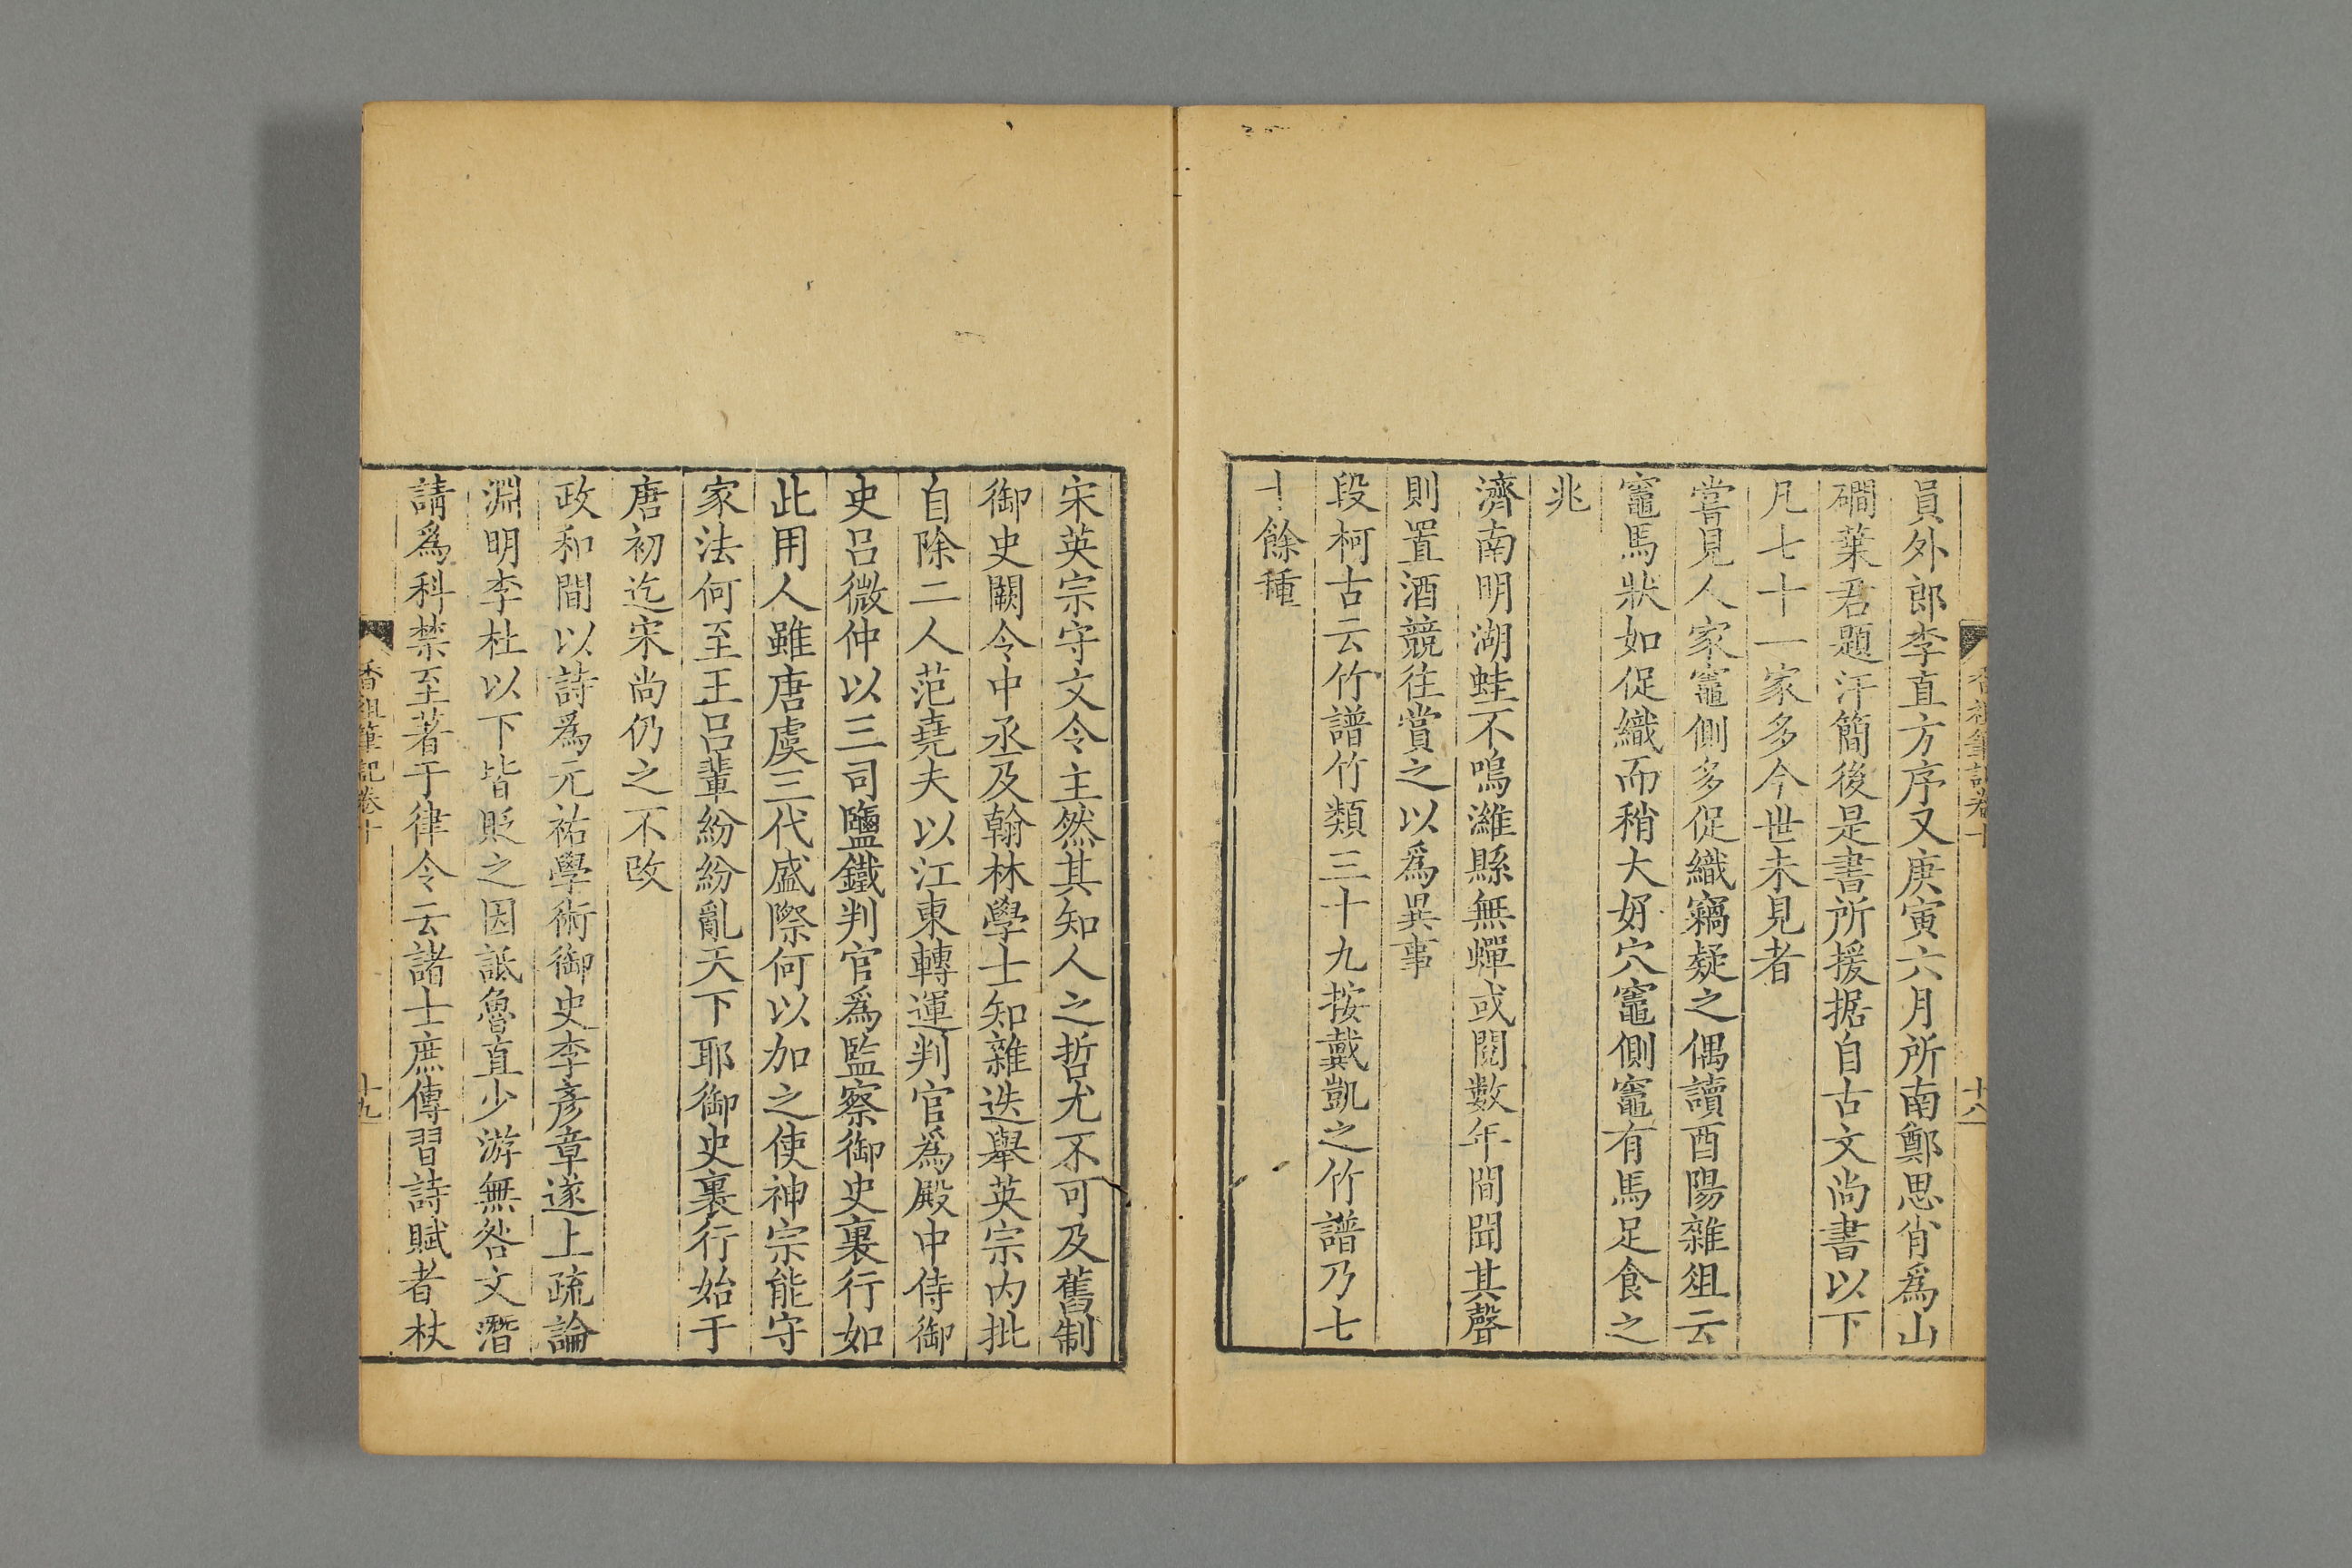 香祖筆記卷十
十八
員外郎李直方序又庚寅六月所南鄭思肖爲山
磵葉君題汗簡後是書所援据自古文尚書以下
凡七十一家多今世未見者
嘗見人家竈側多促織竊疑之偶讀酉陽雜俎云
竈馬狀如促織而稍大好穴竈側竈有馬足食之
兆
濟南明湖蛙不鳴濰縣無蟬或閱數年間聞其聲
則置酒競往賞之以爲異事
段柯古云竹譜竹類三十九按戴凱之竹譜乃七
十餘種
宋英宗守文令主然其知人之哲尤不可及舊制
御史闕令中丞及翰林學士知雜迭舉英宗内批
自除二人范堯夫以江東轉運判官爲殿中侍御
史呂微仲以三司鹽鐵判官爲監察御史裏行如
此用人雖唐虞三代盛際何以加之使神宗能守
家法何至王呂輩紛紛亂天下耶御史裏行始于
唐初迄宋尚仍之不改
政和間以詩爲元祐學術御史李彦章遂上疏論
淵明李杜以下皆貶之因詆魯直少游無咎文潛
請爲科禁至著于律令云諸士庶傳習詩賦者杖
香祖筆記卷十
十九